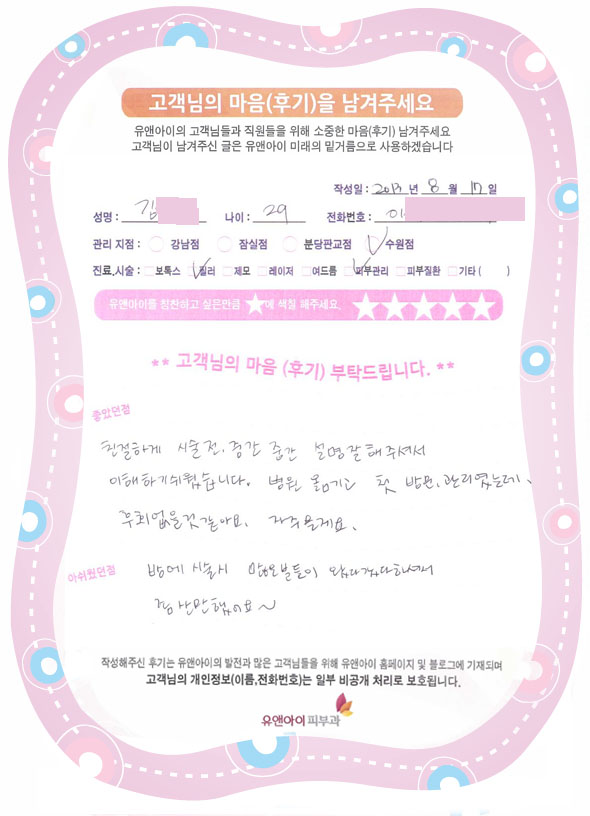 고객님의 마음(후기)을 남겨주세요
유앤아이의 고객님들과 직원들을 위해 소중한 마음(후기) 남겨주세요
고객님이 남겨주신 글은 유앤아이 미래의 밑거름으로 사용하겠습니다
작성일 : 2013 년 8 월 17 일
성명 : 김 나이 : 29 전화번호 :
관리 지점 : 강남점 잠실점 분당판교점 수원점
진료,시술 : 보톡스 필러 제모 레이저 여드름 피부관리 피부질환 기타 ( )
유앤아이를 칭찬하고 싶은만큼 ★에 색칠 해주세요. ★★★★★
** 고객님의 마음 (후기) 부탁드립니다. **
좋았던점
친절하게 시술전, 중간 중간 설명잘해주셔서
이해하기쉬웠습니다. 병원 옮기고 첫 방문, 관리였는데,
후회없을것같아요. 자주올게요.
아쉬웠던점
방에 시술시 왔다갔다하셔서
산만했어요~
작성해주신 후기는 유앤아이의 발전과 많은 고객님들을 위해 유앤아이 홈페이지 및 블로그에 기재되며
고객님의 개인정보(이름,전화번호)는 일부 비공개 처리로 보호됩니다.
유앤아이피부과